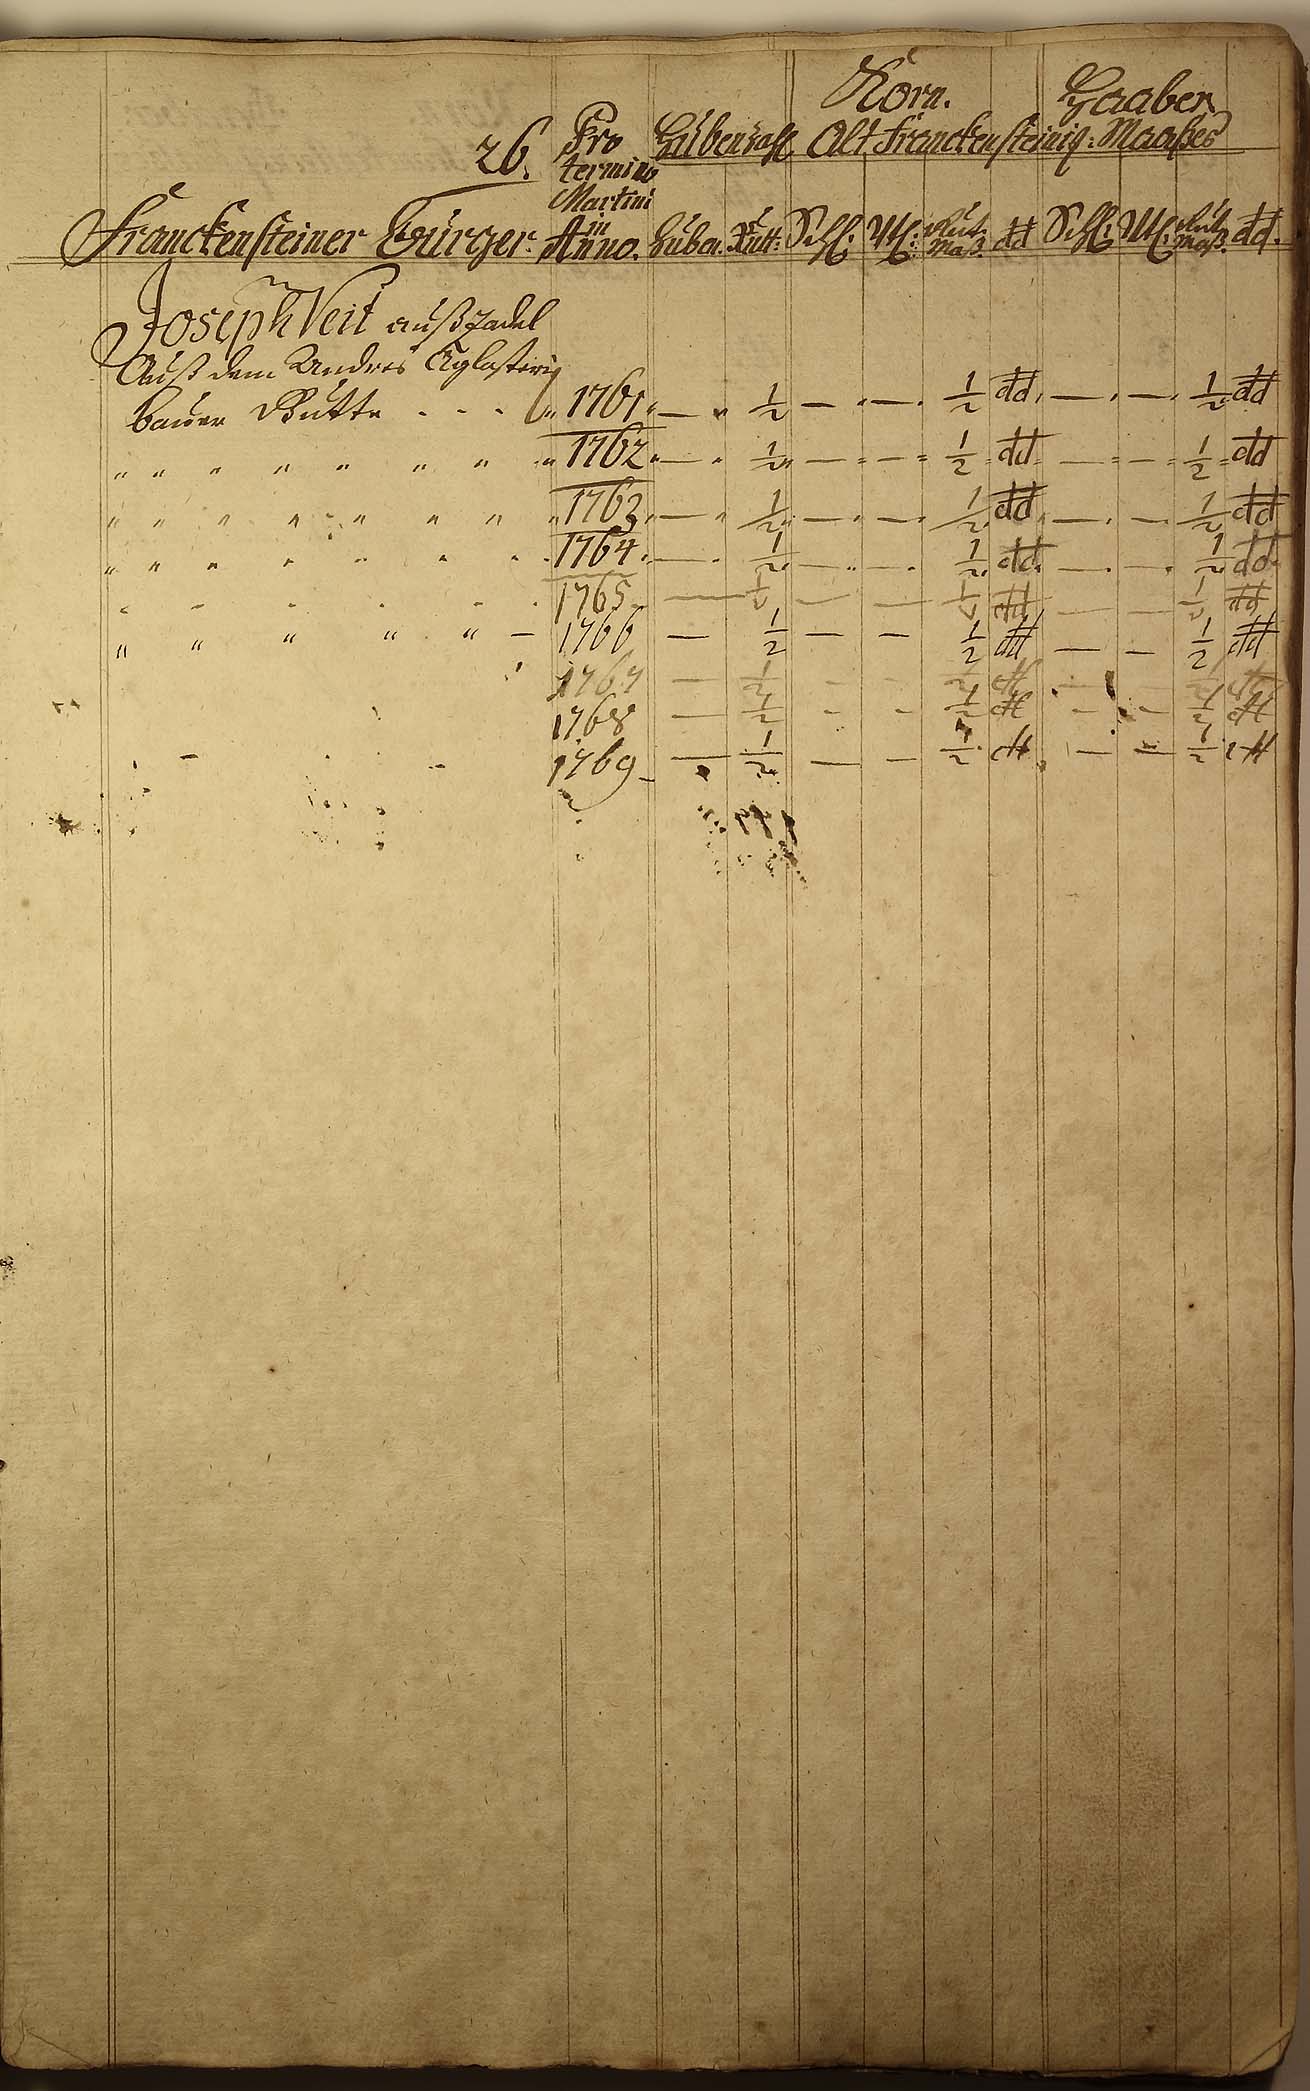 Korn. Haaber
26. Pro termino Martini in Anno. Hubenzahl Alt Franckensteinig. Maaßes
Franckensteiner Bürger. Huben. Rutt: Schl: Mtl: Maß. dd Schl: Mtl: Maß. dd.
Joseph Veit auß Zadel
Auß dem Andres
bauer Gutte - - - 1761 — ½ — — ½ dd — — ½ dd
" " " " " " " 1762 — ½ — — ½ dd — — ½ dd
" " " " " " " 1763 — ½ — — ½ dd — — ½ dd
" " " " " " " 1764 — ½ — — ½ dd — — ½ dd
1765 — ½ — — ½ dd — — ½ dd
" " " " " — 1766 — ½ — — ½ dd — — ½ dd
1767 — ½ — — ½ dd — — ½ dd
1768 — ½ - - ½ dd — - ½ dd
1769 — ½ — — ½ dd — — ½ dd